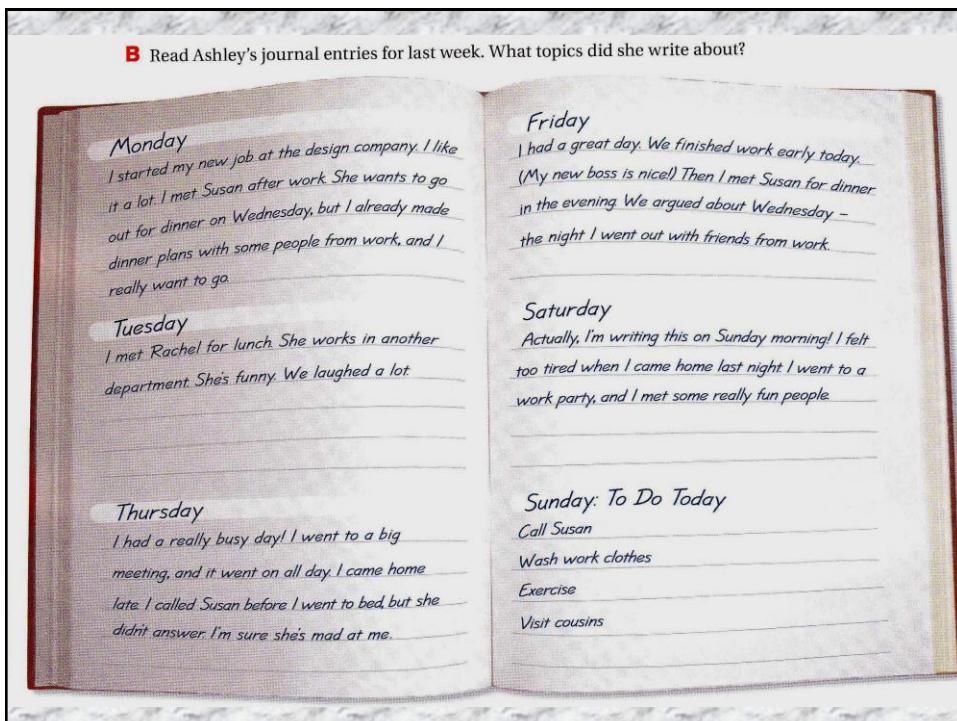 B Read Ashley's journal entries for last week. What topics did she write about?
Monday
I started my new job at the design company. I like
it a lot. I met Susan after work. She wants to go
out for dinner on Wednesday, but I already made
dinner plans with some people from work, and I
really want to go.
Tuesday
I met Rachel for lunch. She works in another
department. She's funny. We laughed a lot.
Thursday
I had a really busy day! I went to a big
meeting, and it went on all day. I came home
late. I called Susan before I went to bed, but she
didn't answer. I'm sure she's mad at me.
Friday
I had a great day. We finished work early today.
(My new boss is nice!) Then I met Susan for dinner
in the evening. We argued about Wednesday –
the night I went out with friends from work.
Saturday
Actually, I'm writing this on Sunday morning! I felt
too tired when I came home last night. I went to a
work party, and I met some really fun people.
Sunday: To Do Today
Call Susan
Wash work clothes
Exercise
Visit cousins